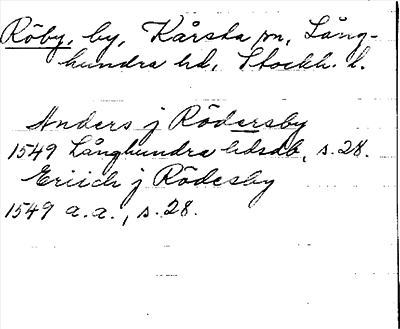 Röby, by, Kårsta sn, Lång-
hundra hd, Stockh. l.
Anders j Rödersby
1549 Långhundra hdsdb, s. 28.
Eriich j Rödesby
1549 a.a., s. 28.